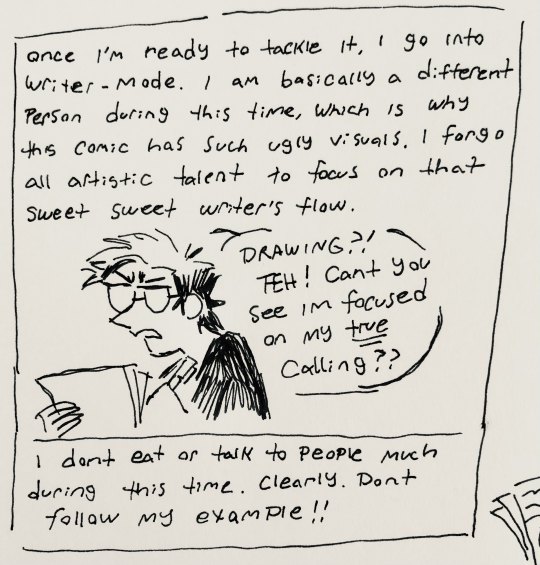 Once I'm ready to tackle it, I go into
writer-mode. I am basically a different
person during this time, which is why
this comic has such ugly visuals. I forgo
all artistic talent to focus on that
sweet sweet writer's flow.
DRAWING?!
FEH! Cant you
see im focused
on my true
calling??
I dont eat or talk to people much
during this time. Clearly. Dont
follow my example!!